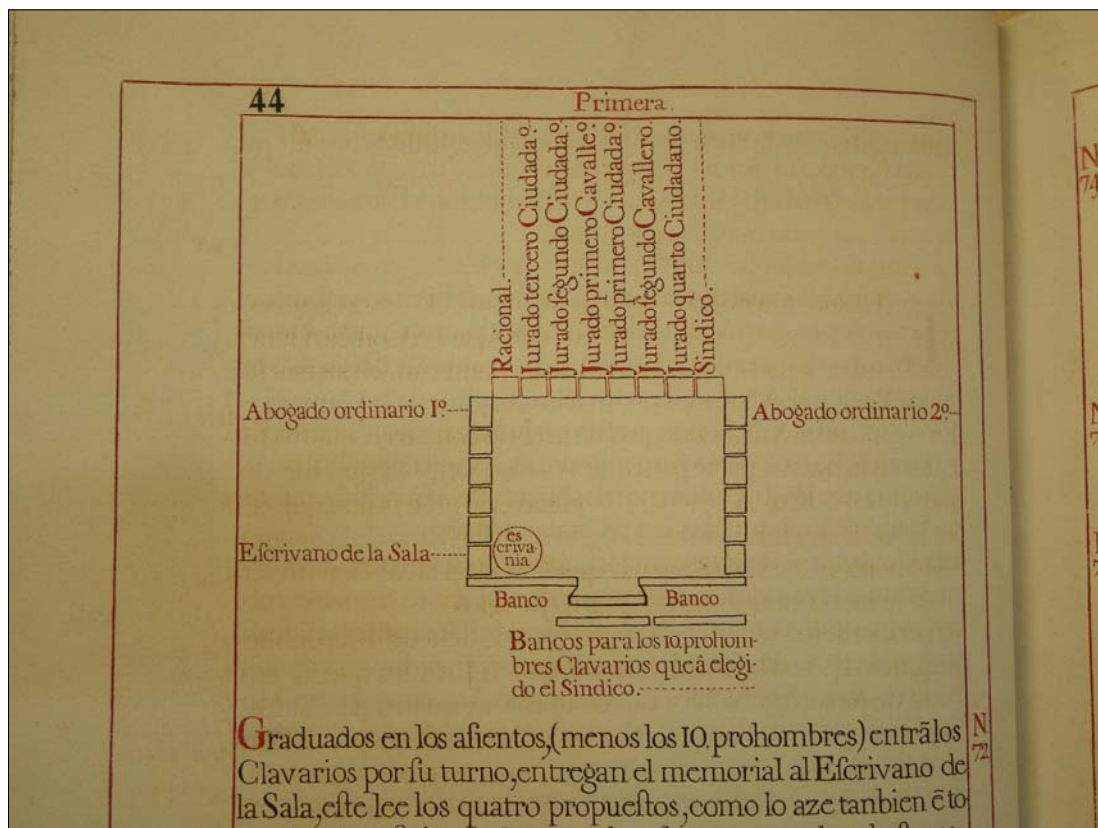 44
Primera.
Racional.
Jurado tercero Ciudada°.
Jurado ſegundo Ciudada°.
Jurado primero Cavalle°.
Jurado primero Ciudada°.
Jurado ſegundo Cavallero.
Jurado quarto Ciudadano.
Sindico.
Abogado ordinario 1°
Abogado ordinario 2°
Eſcrivano de la Sala
es
criva-
nia
Banco
Banco
Bancos para los 10. prohom-
bres Clavarios que â elegi-
do el Sindico.
Graduados en los aſientos, (menos los 10. prohombres) entrãlos
Clavarios por ſu turno, entregan el memorial al Eſcrivano de
la Sala, eſte lee los quatro propueſtos, como lo aze tanbien ẽ to
N
72
N
74